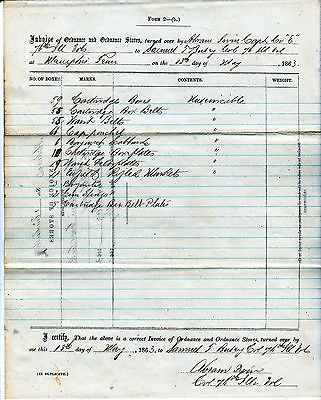 FORM 2—(b.)
Invoice of Ordnance and Ordnance Stores, turned over by Abram Irvin Capt. Co "E"
76th Ill Vols to Samuel T Busey Col 76 Ill Vol
at Memphis Tenn on the 13th day of May 1863
NO. OF BOXES. MARKS. CONTENTS. WEIGHT.
59 Cartridge Boxes Unservicible
Cartridge Box Belts "
55 Waist Belts "
Cap pouches "
Bayonet Scabbards "
Cartridge Box plates "
Waist Belt plates "
Enfield Rifled Muskets "
Bayonets
Gun Slings
Cartridge Box Belt Plates
I certify, That the above is a correct Invoice of Ordnance and Ordnance Stores, turned over by
me this 13th day of May 1863 to Samuel T Busey Col 76th Ill Vol
Abram Irvin
76th Ills Vol
(IN DUPLICATE.)